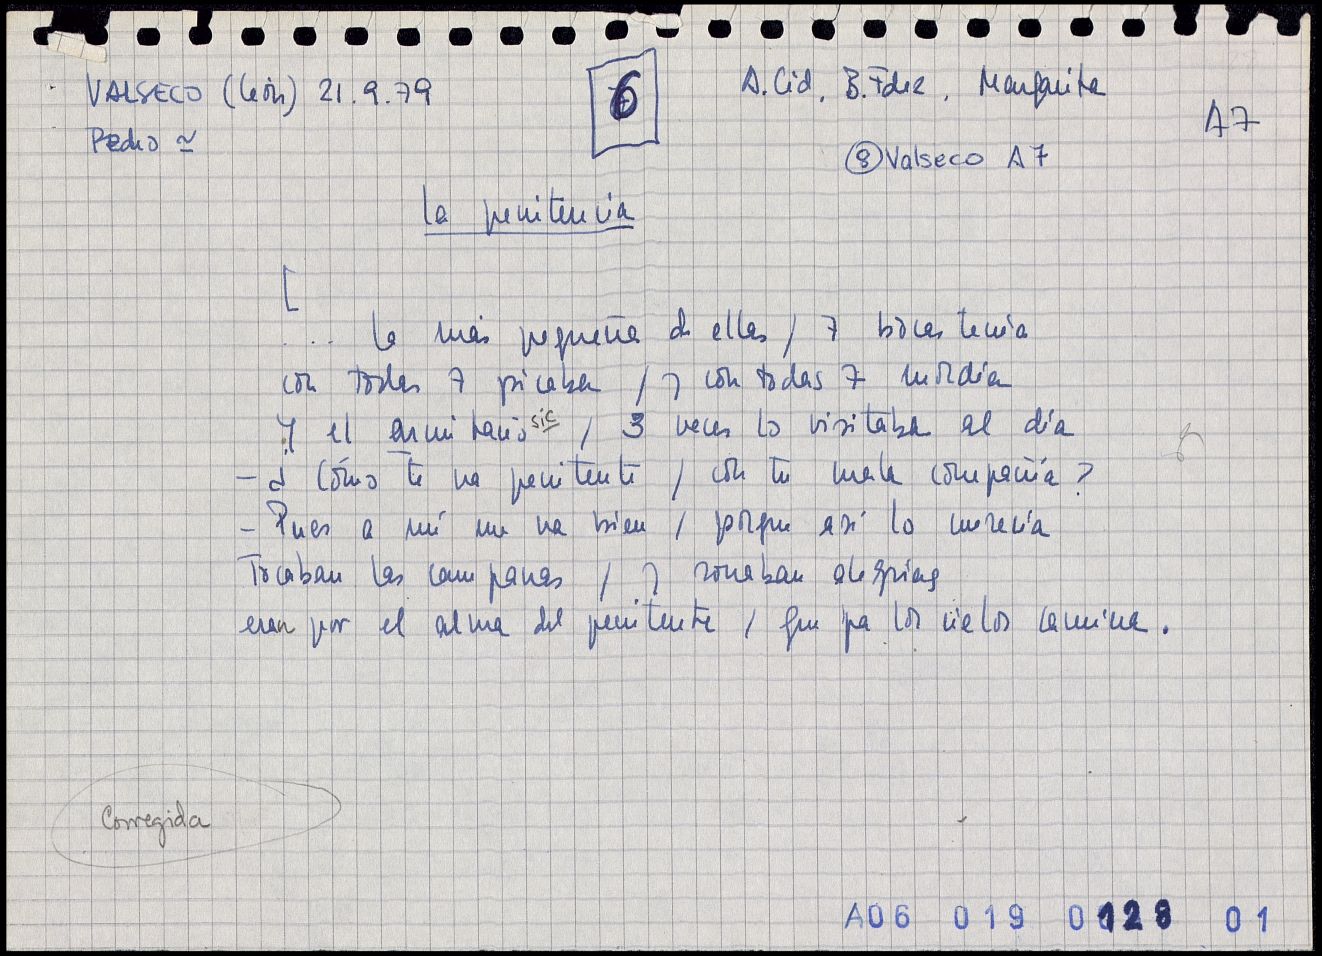 VALSECO (León) 21.9.79
6
A. Cid, B. Fdez, Margarita
A7
Pedro ≃
⑧ Valseco A7
La penitencia
[
.... la más pequeña de ellas / 7 bocas tenía
con todas 7 picaba / y con todas 7 mordía
Y el armitaño sic / 3 veces lo visitaba al día
- ¿Cómo te va penitente / con tu mala compañía?
- Pues a mí me va bien / porque así lo merecía
Tocaban las campanas / y sonaban alegrías
eran por el alma del penitente / que pa los cielos camina.
Corregida
A06 019 0128 01